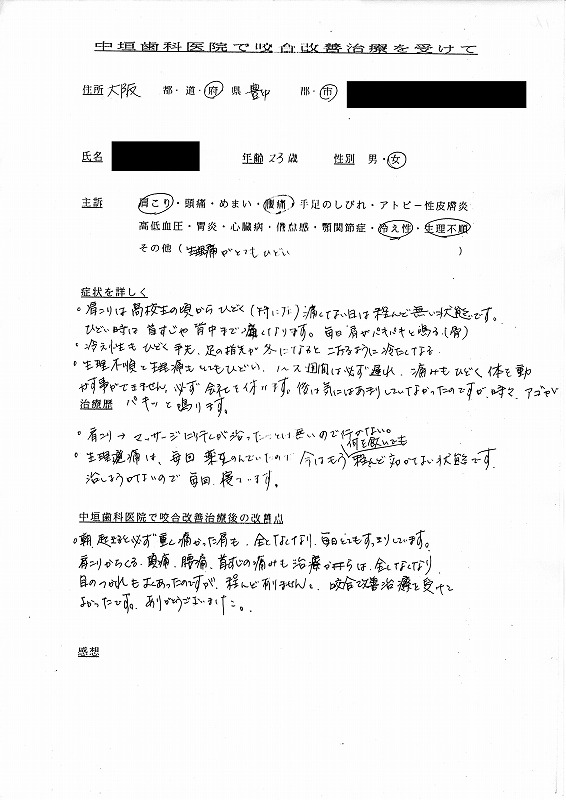 中垣歯科医院で咬合改善治療を受けて
住所 大阪 都・道・府 県 豊中 郡・市
氏名 年齢 23歳 性別 男・女
主訴 肩こり・頭痛・めまい・腰痛 手足のしびれ・アトピー性皮膚炎
高低血圧・胃炎・心臓病・倦怠感・顎関節症・冷え性・生理不順
その他(生理痛がとてもひどい )
症状を詳しく
。肩こりは高校生の頃からひどく(特に右)痛くない日は程んど無い状態です。
ひどい時は首すじや背中まで痛くなります。毎日肩がパキパキと鳴る(骨)
。冷え性もひどく手先、足の指先が冬になるとこおるように冷たくなる。
。生理不順と生理痛もとてもひどい、1〜2週間は必ず遅れ、痛みもひどく体を動
かす事ができません。必ず会社を休います。後は気にはあまりしていなかったのですが、時々、アゴが
治療歴 パキッと鳴ります。
。肩こり→マッサージに行っても治ったことは無いので行かない。
何を飲んでも
。生理痛は、毎回薬をのんでいたので今はもう程んど効かない状態です。
治しようがないので毎回、寝ています。
中垣歯科医院で咬合改善治療後の改善点
。朝、起きると必ず重く痛かった肩も、全くなくなり、毎日とてもすっきりしています。
肩こりからくる、頭痛、腰痛、首すじの痛みも治療が終了後は、全くなくなり
目のつかれもよくあったのですが、程んどありませんし、咬合改善治療を受けて
よかったです。ありがとうございました。
感想